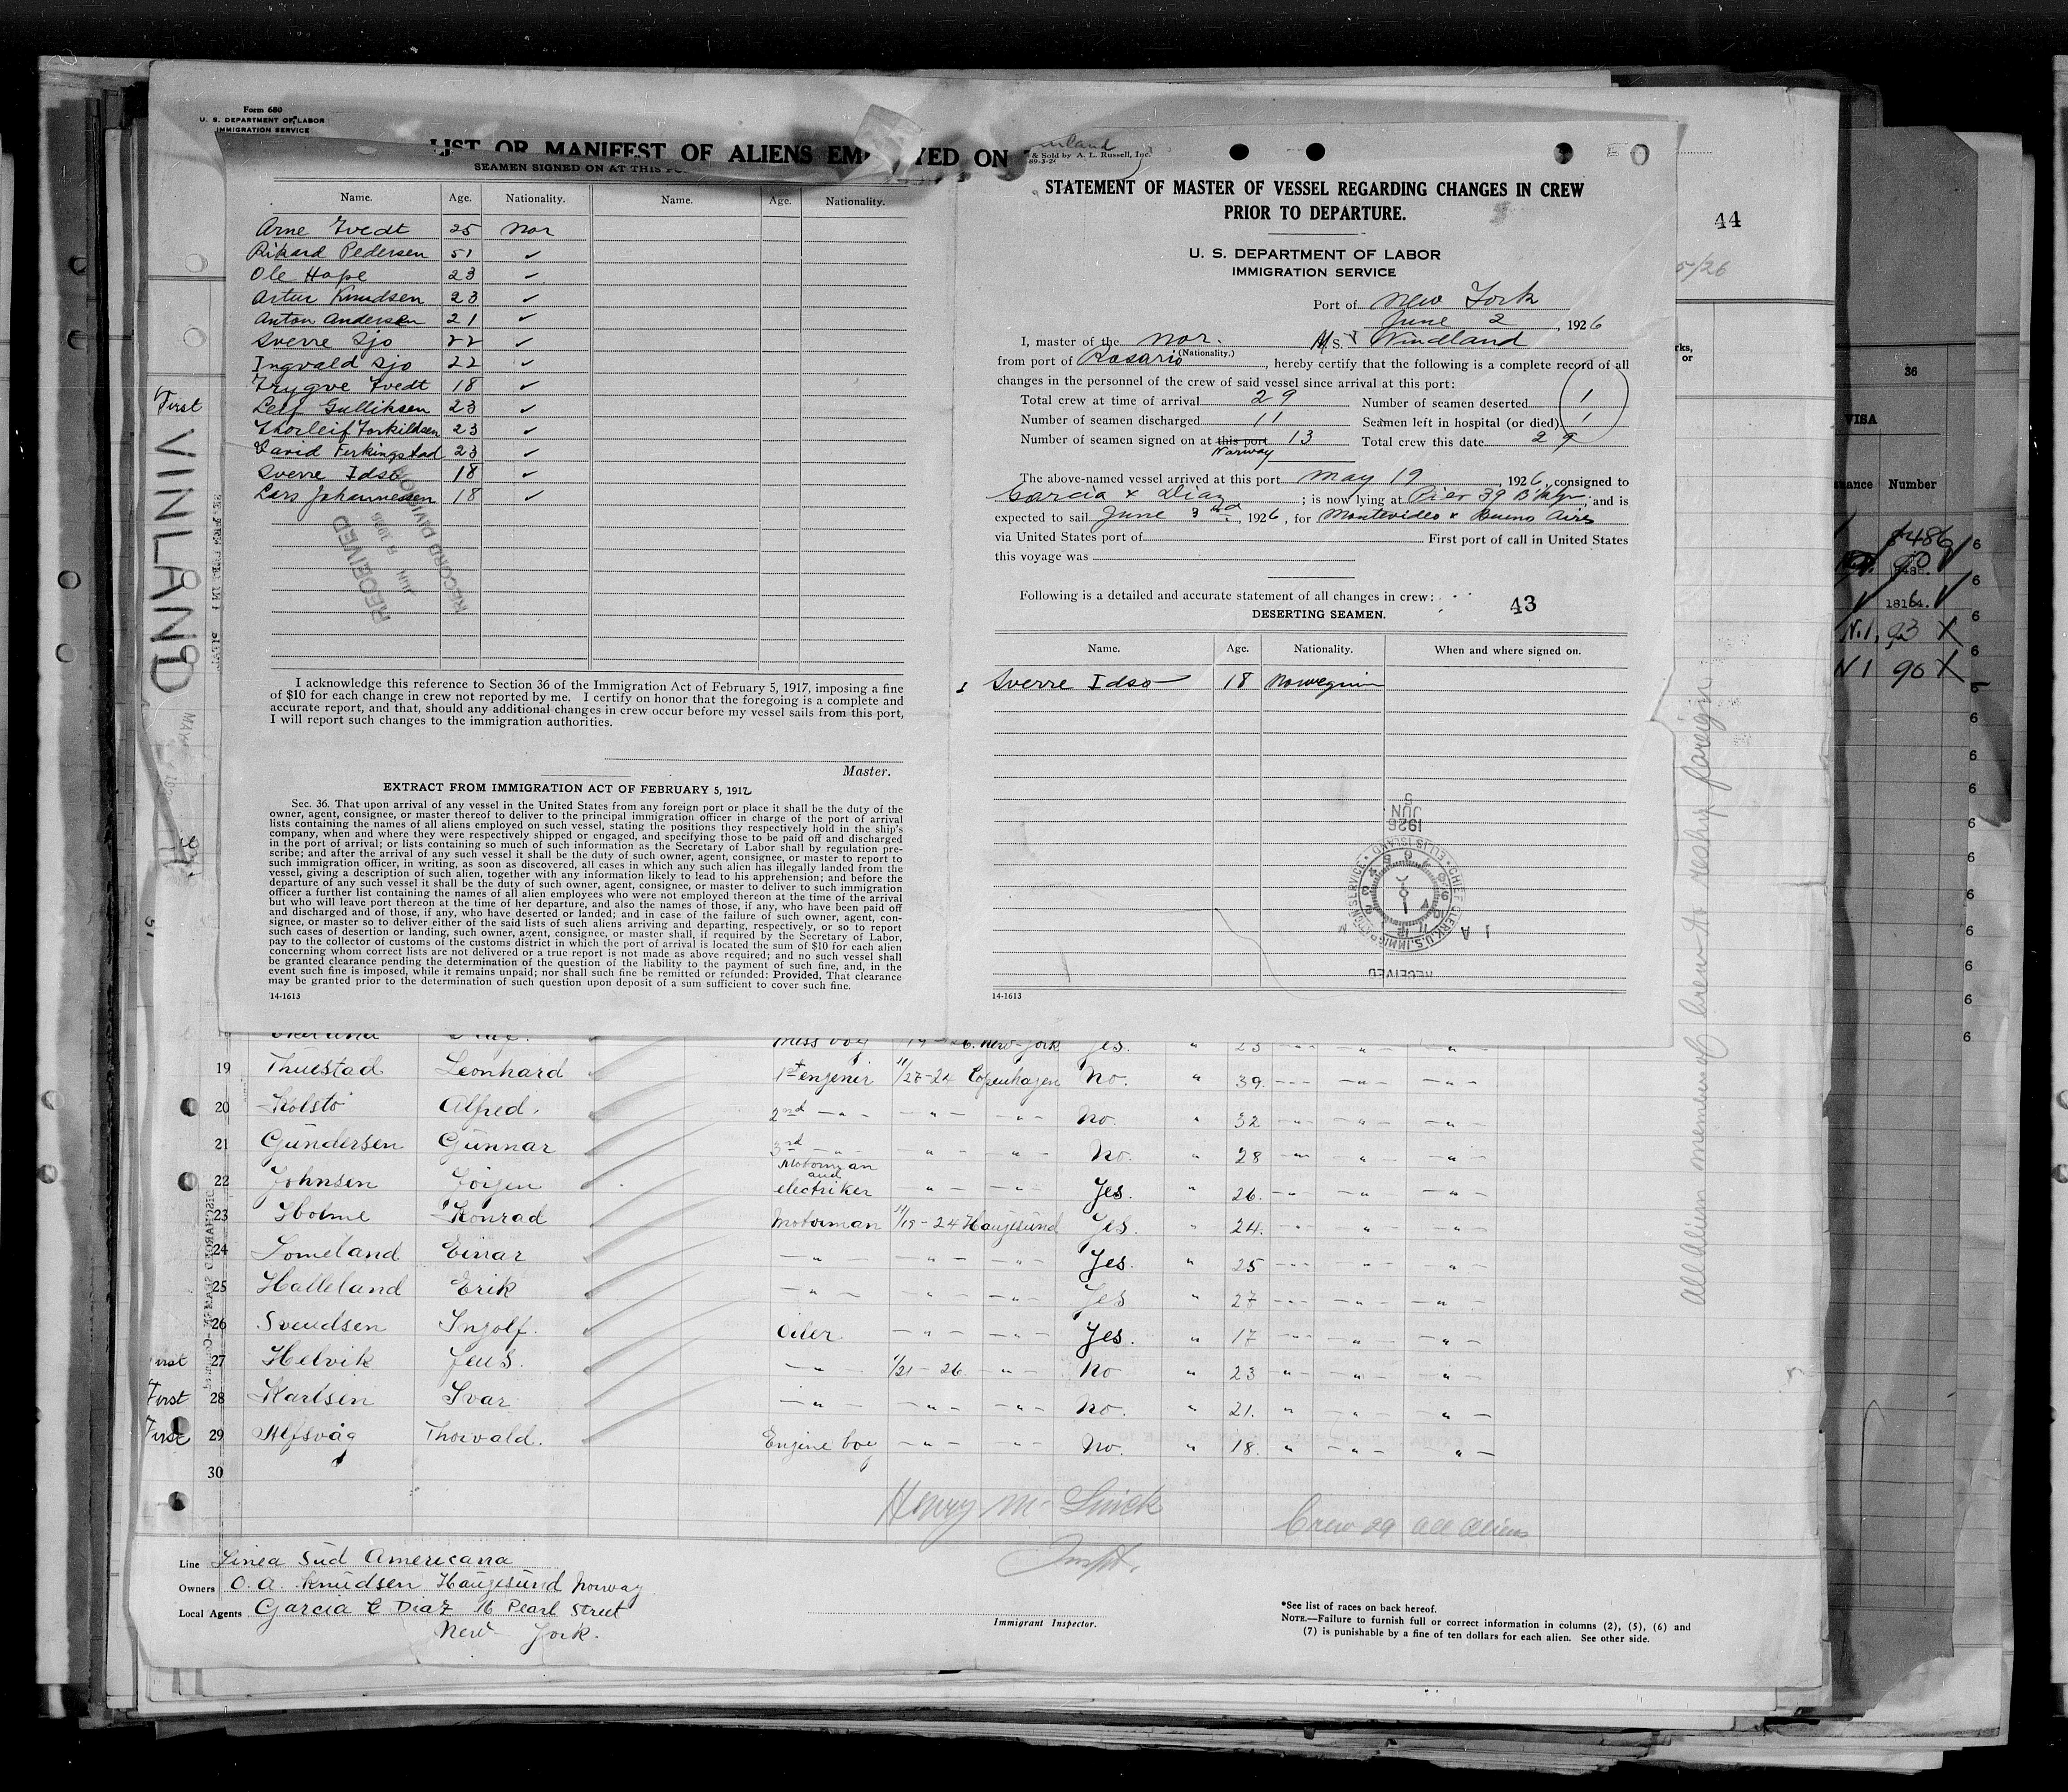 Form 680
U. S. DEPARTMENT OF LABOR
IMMIGRATION SERVICE
LIST OR MANIFEST OF ALIENS EMPLOYED ON
SEAMEN SIGNED ON AT THIS
Name. Age. Nationality. Name. Age. Nationality.
Arne Tvedt 25 Nor
Rikard Pedersen 51 ✓
Ole Hope 23 ✓
Artur Knudsen 23 ✓
Anton Andersen 21 ✓
Sverre Sjo 22 ✓
Ingvald Sjo 22 ✓
Trygve Tvedt 18 ✓
Leif Gulliksen 23 ✓
Thorleif Torkildsen 23 ✓
David Ferkingstad 23 ✓
Sverre Idso 18 ✓
Lars Johannesen 18 ✓
RECEIVED
JUN 5 1926
RECORD DIVISION
I acknowledge this reference to Section 36 of the Immigration Act of February 5, 1917, imposing a fine
of $10 for each change in crew not reported by me. I certify on honor that the foregoing is a complete and
accurate report, and that, should any additional changes in crew occur before my vessel sails from this port,
I will report such changes to the immigration authorities.
Master.
EXTRACT FROM IMMIGRATION ACT OF FEBRUARY 5, 1917.
Sec. 36. That upon arrival of any vessel in the United States from any foreign port or place it shall be the duty of the
owner, agent, consignee, or master thereof to deliver to the principal immigration officer in charge of the port of arrival
lists containing the names of all aliens employed on such vessel, stating the positions they respectively hold in the ship's
company, when and where they were respectively shipped or engaged, and specifying those to be paid off and discharged
in the port of arrival; or lists containing so much of such information as the Secretary of Labor shall by regulation pre-
scribe; and after the arrival of any such vessel it shall be the duty of such owner, agent, consignee, or master to report to
such immigration officer, in writing, as soon as discovered, all cases in which any such alien has illegally landed from the
vessel, giving a description of such alien, together with any information likely to lead to his apprehension; and before the
departure of any such vessel it shall be the duty of such owner, agent, consignee, or master to deliver to such immigration
officer a further list containing the names of all alien employees who were not employed thereon at the time of the arrival
but who will leave port thereon at the time of her departure, and also the names of those, if any, who have been paid off
and discharged and of those, if any, who have deserted or landed; and in case of the failure of such owner, agent, con-
signee, or master so to deliver either of the said lists of such aliens arriving and departing, respectively, or so to report
such cases of desertion or landing, such owner, agent, consignee, or master shall, if required by the Secretary of Labor,
pay to the collector of customs of the customs district in which the port of arrival is located the sum of $10 for each alien
concerning whom correct lists are not delivered or a true report is not made as above required; and no such vessel shall
be granted clearance pending the determination of the question of the liability to the payment of such fine, and, in the
event such fine is imposed, while it remains unpaid; nor shall such fine be remitted or refunded: Provided, That clearance
may be granted prior to the determination of such question upon deposit of a sum sufficient to cover such fine.
14-1613
& Sold by A. L. Russell, Inc.
STATEMENT OF MASTER OF VESSEL REGARDING CHANGES IN CREW
PRIOR TO DEPARTURE.
U. S. DEPARTMENT OF LABOR
IMMIGRATION SERVICE
Port of New York
June 2, 1926
I, master of the Nor. M/S. Vindland
(Nationality.)
from port of Rosario, hereby certify that the following is a complete record of all
changes in the personnel of the crew of said vessel since arrival at this port:
Total crew at time of arrival 29 Number of seamen deserted 1
Number of seamen discharged 11 Seamen left in hospital (or died) 1
Number of seamen signed on at this port 13 Total crew this date 29
Norway
The above-named vessel arrived at this port May 19, 1926, consigned to
Garcia & Diaz; is now lying at Pier 39 B'klyn; and is
expected to sail June 3rd, 1926, for Montevideo & Buenos Aires
via United States port of First port of call in United States
this voyage was
Following is a detailed and accurate statement of all changes in crew:
43
DESERTING SEAMEN.
Name. Age. Nationality. When and where signed on.
1 Sverre Idso 18 Norwegian
1926
JUN
5
CHIEF CLERK, U.S. IMMIGRATION SERVICE • ELLIS ISLAND •
RECEIVED
14-1613
44
5/26
36
VISA
Number
First
VINLAND
All alien members of crew to reship foreign
Mess boy New-York Yes. " 23
19 Thuestad Leonhard 1st enginer 11/27-24 Copenhagen No. " 39
20 Kolstö Alfred. 2nd -"- -"- -"- No. " 32
21 Gundersen Gunnar 3rd -"- " " No. " 28
22 Johnsen Jörgen Motorman and electriker " " Yes. " 26.
23 Holme Konrad Motorman 11/19-24 Haugesund Yes. " 24.
24 Lomeland Einar -"- " -"- Yes. " 25
25 Halleland Erik -"- " -"- Yes " 27
26 Svendsen Ingolf. Oiler -"- -"- Yes. " 17
First 27 Helvik Jens. -"- 1/21-26 -"- No " 23
First 28 Karlsen Ivar -"- -"- -"- No. " 21.
First 29 Alfsvåg Thorvald. Engine boy -"- -"- No. " 18.
30
Henry M. Quick
Inspt.
Crew 29 all aliens
Line Linea Sud Americana
Owners O. A. Knudsen Haugesund Norway
Local Agents Garcia & Diaz 16 Pearl Street
New York.
Immigrant Inspector.
*See list of races on back hereof.
NOTE.—Failure to furnish full or correct information in columns (2), (5), (6) and
(7) is punishable by a fine of ten dollars for each alien. See other side.